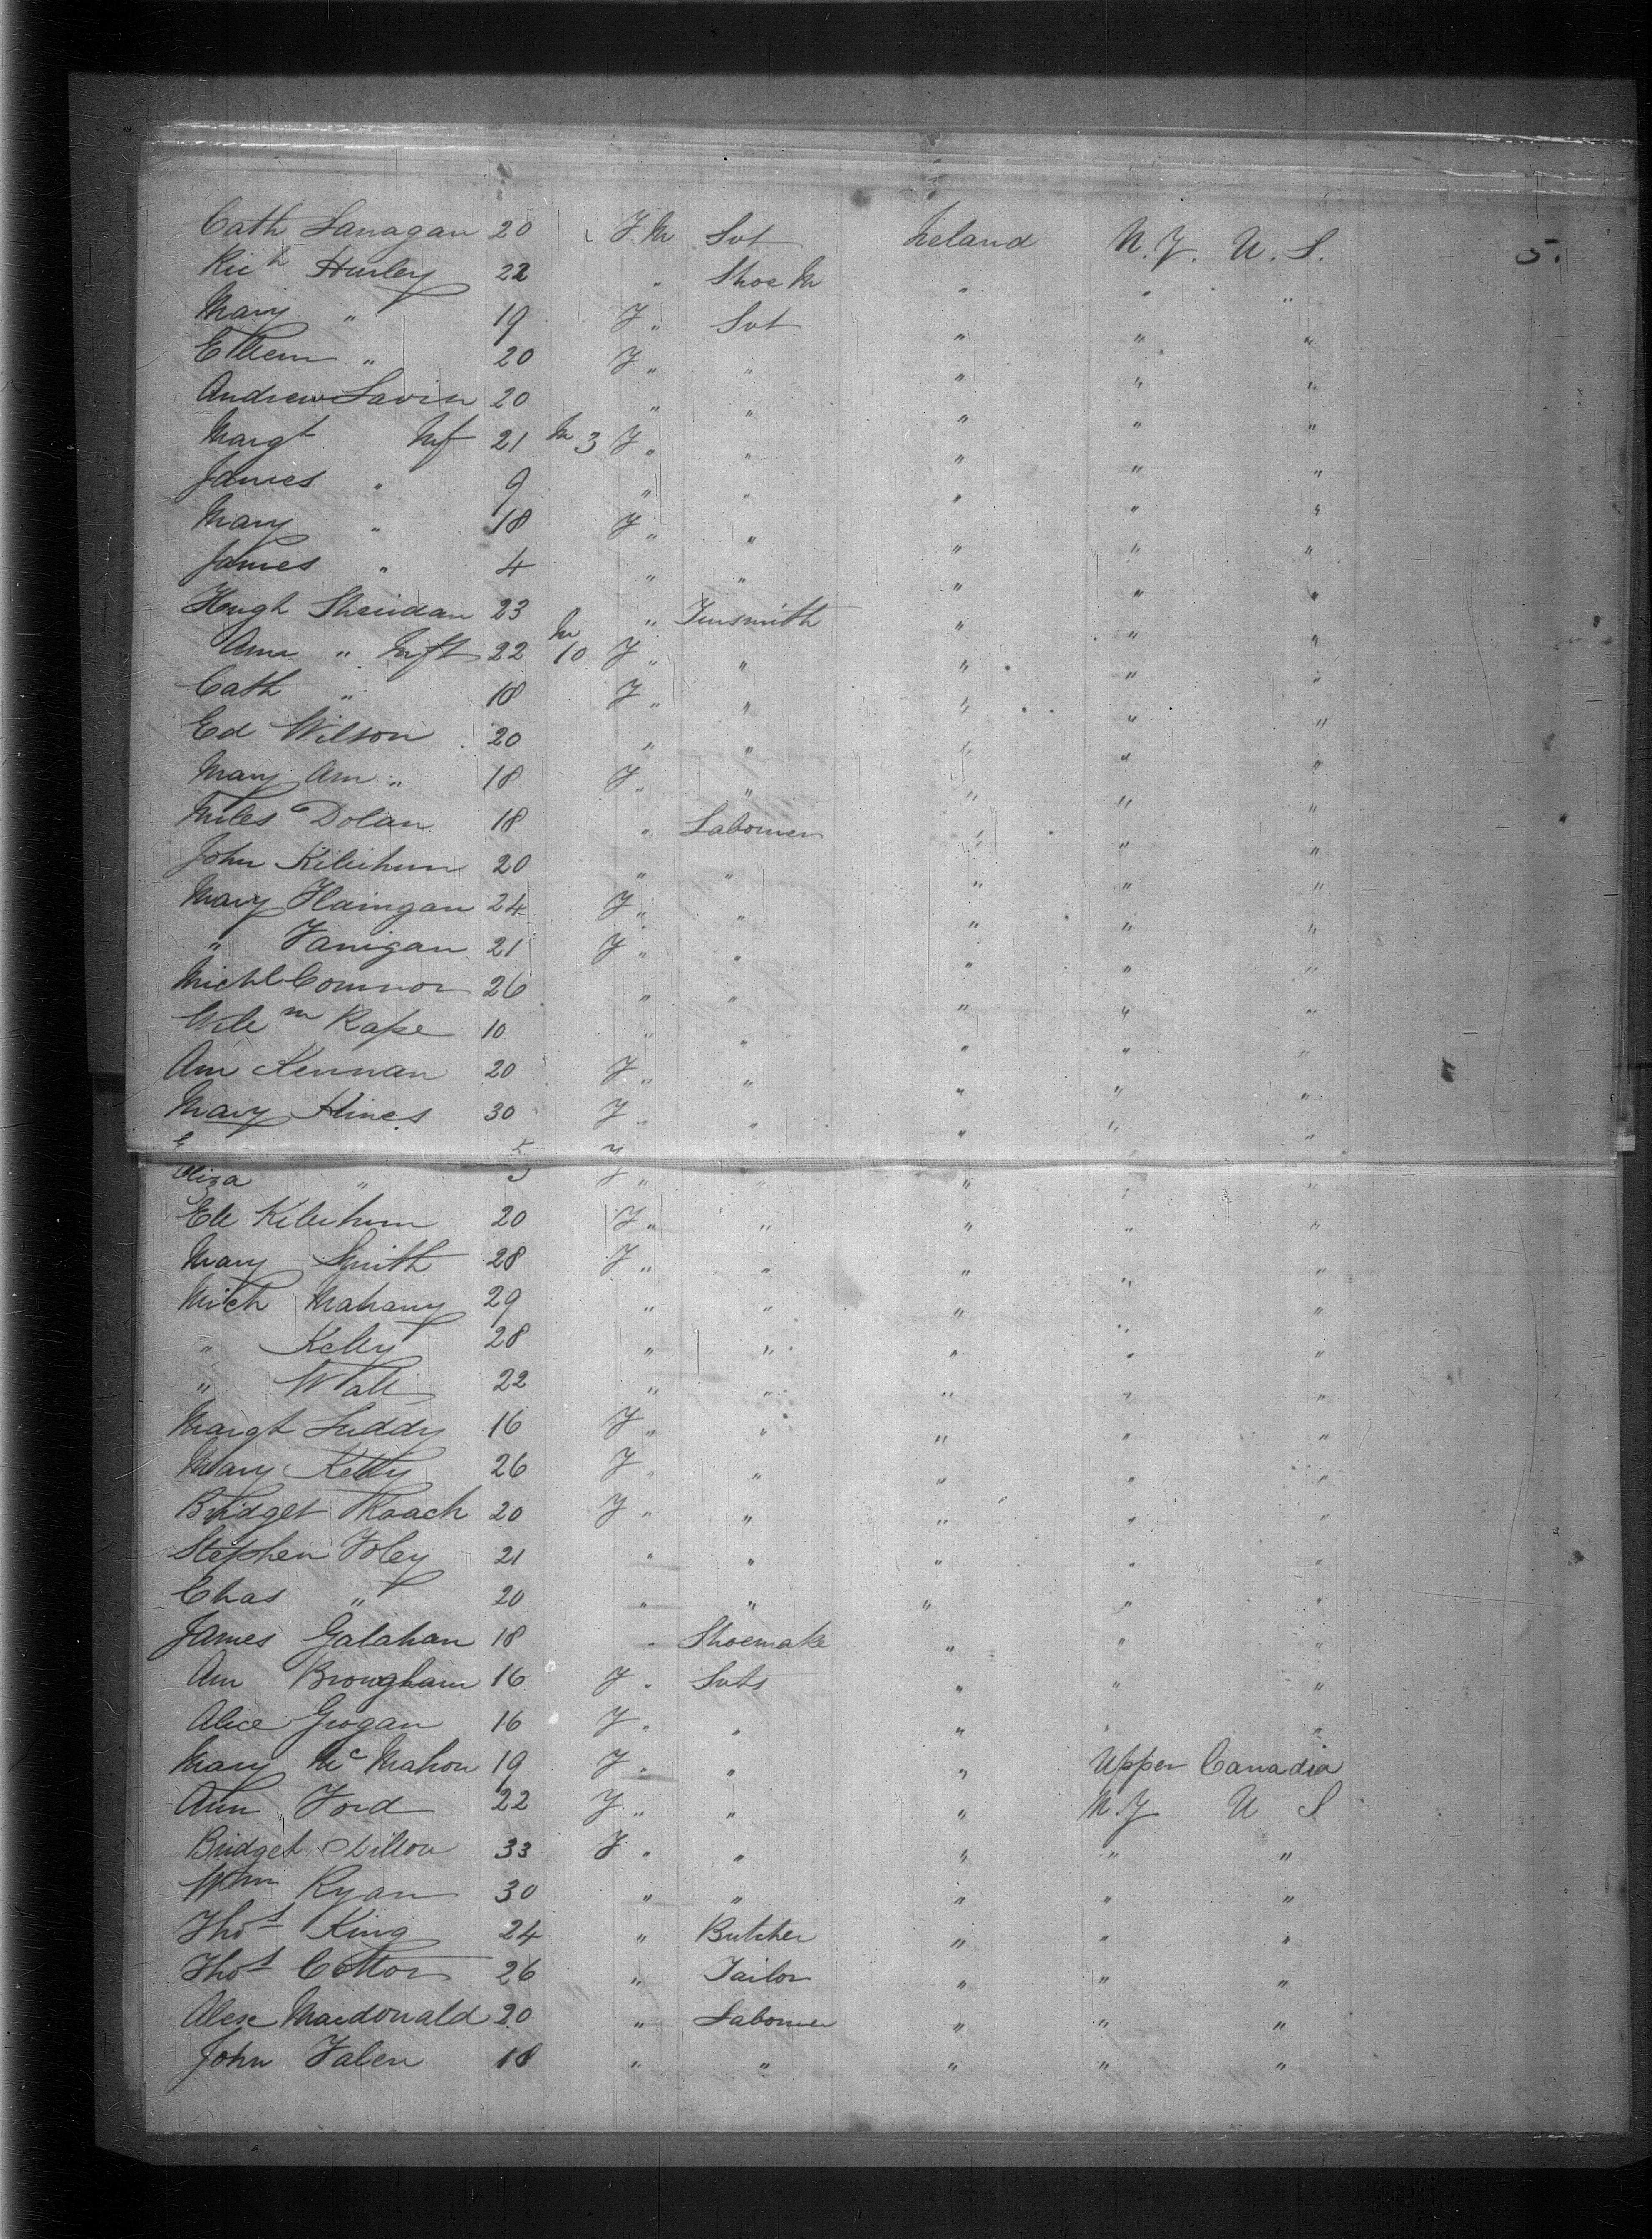 Cath Lanagan 20 F. M Svt Ireland N.Y. U.S. 5.
Rich Hurley 22 " Shoe M " " "
Mary " 19 F " Svt " " "
Ellenn " 20 F " " " " "
Andrew Lavin 20 " " " " "
Margt Inf 21 M 3 F " " " " "
James " 9 " " " " "
Mary " 18 F " " " " "
James " 4 " " " " "
Hugh Sheridan 23 " Tinsmith " " "
Ann " Inft 22 M 10 F " " " " "
Cath " 18 F " " " " "
Ed Wilson 20 " " " " "
Mary Ann " 18 F " " " " "
Miles Dolan 18 " Labourer " " "
John Kilichum 20 " " " " "
Mary Flaingan 24 F " " " " "
" Fanigan 21 F " " " " "
Michl Connor 26 " " " " "
Willm Rape 10 " " " " "
Ann Kennan 20 F " " " " "
Mary Hines 30 F " " " " "
Eliza " 5 F " " " " "
Ell Kilichum 20 F " " " " "
Mary Smith 28 F " " " " "
Mich Mahany 29 " " " " "
" Kelly 28 " " " " "
" Wall 22 " " " " "
Margt Luddy 16 F " " " " "
Mary Kelly 26 F " " " " "
Bridget Roach 20 F " " " " "
Stephen Foley 21 " " " " "
Chas " 20 " " " " "
James Galahan 18 " Shoemake " " "
Ann Brougham 16 F " Svts " " "
Alice Grogan 16 F " " " " "
Mary McMahon 19 F " " " Upper Canada
Ann Ford 22 F " " " N.Y U S.
Bridget Dillon 33 F " " " " "
Wm Ryan 30 " " " " "
Thos King 24 " Butcher " " "
Thos Cotton 26 " Tailor " " "
Alex Macdonald 20 " Labourer " " "
John Falen 18 " " " " "